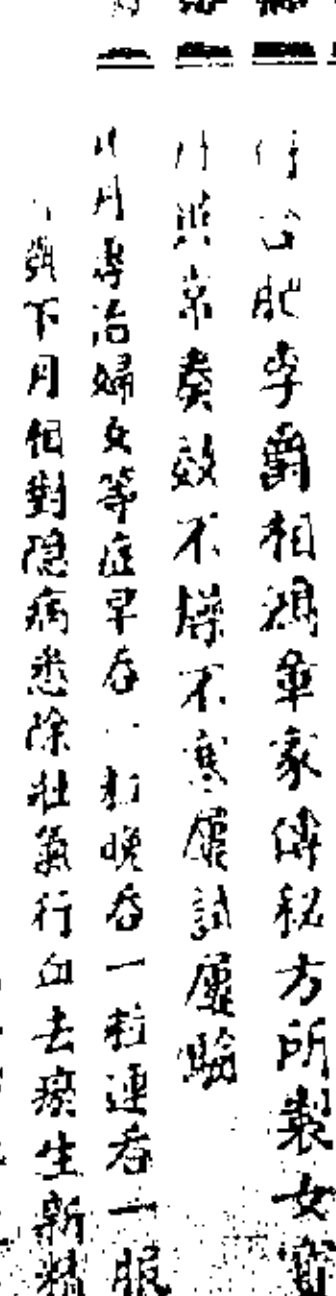 合肥李爵相鴻章家傳秘方所製女寶
奏效不增不寒屢試屢驗
月專治婦女等症早吞一粒晚吞一粒連吞一服
下月相對隱病悉除壯氣行血去瘀生新精